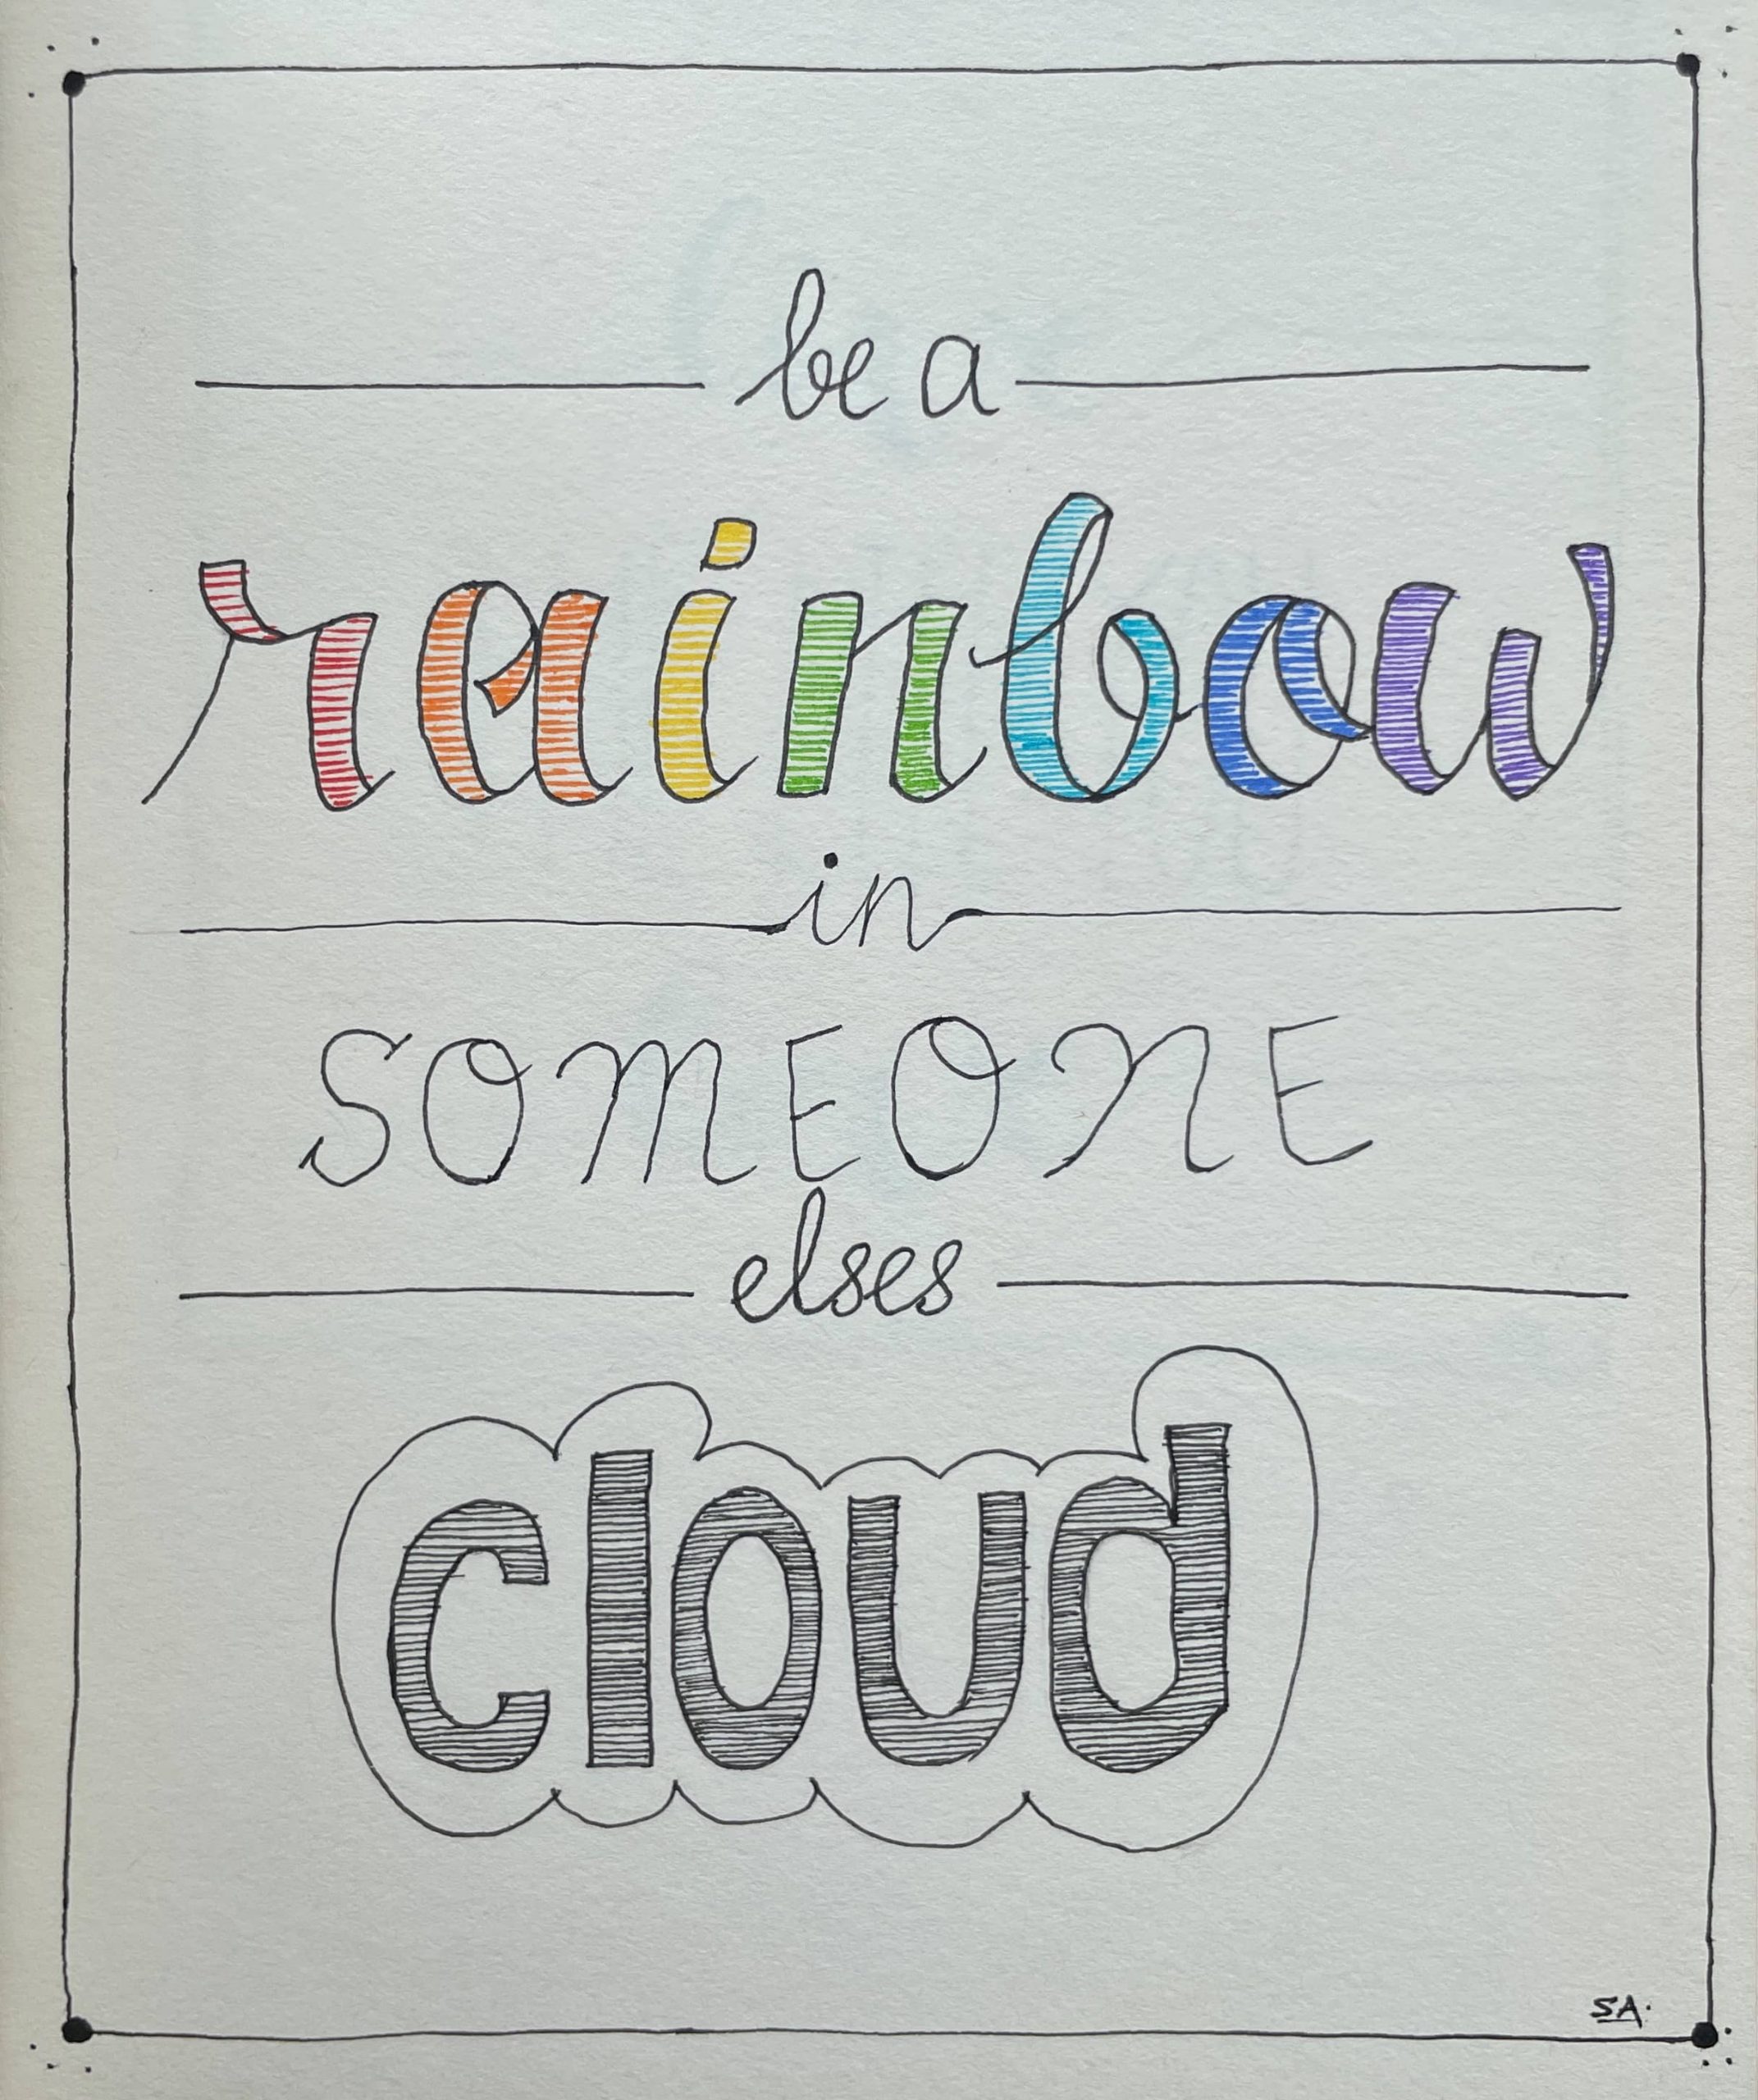 be a
rainbow
in
SOMEONE
elses
cloud
SA.